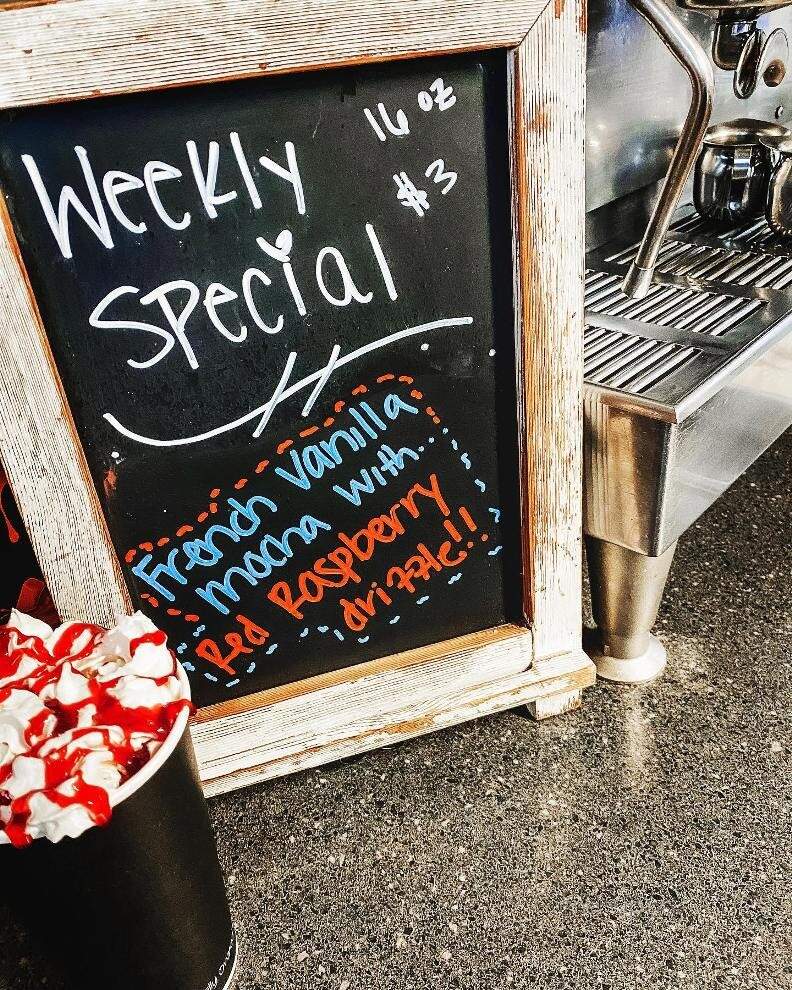 Weekly
Special
16 oz
#3
French Vanilla
mocha with...
Red Raspberry
drizzle!!